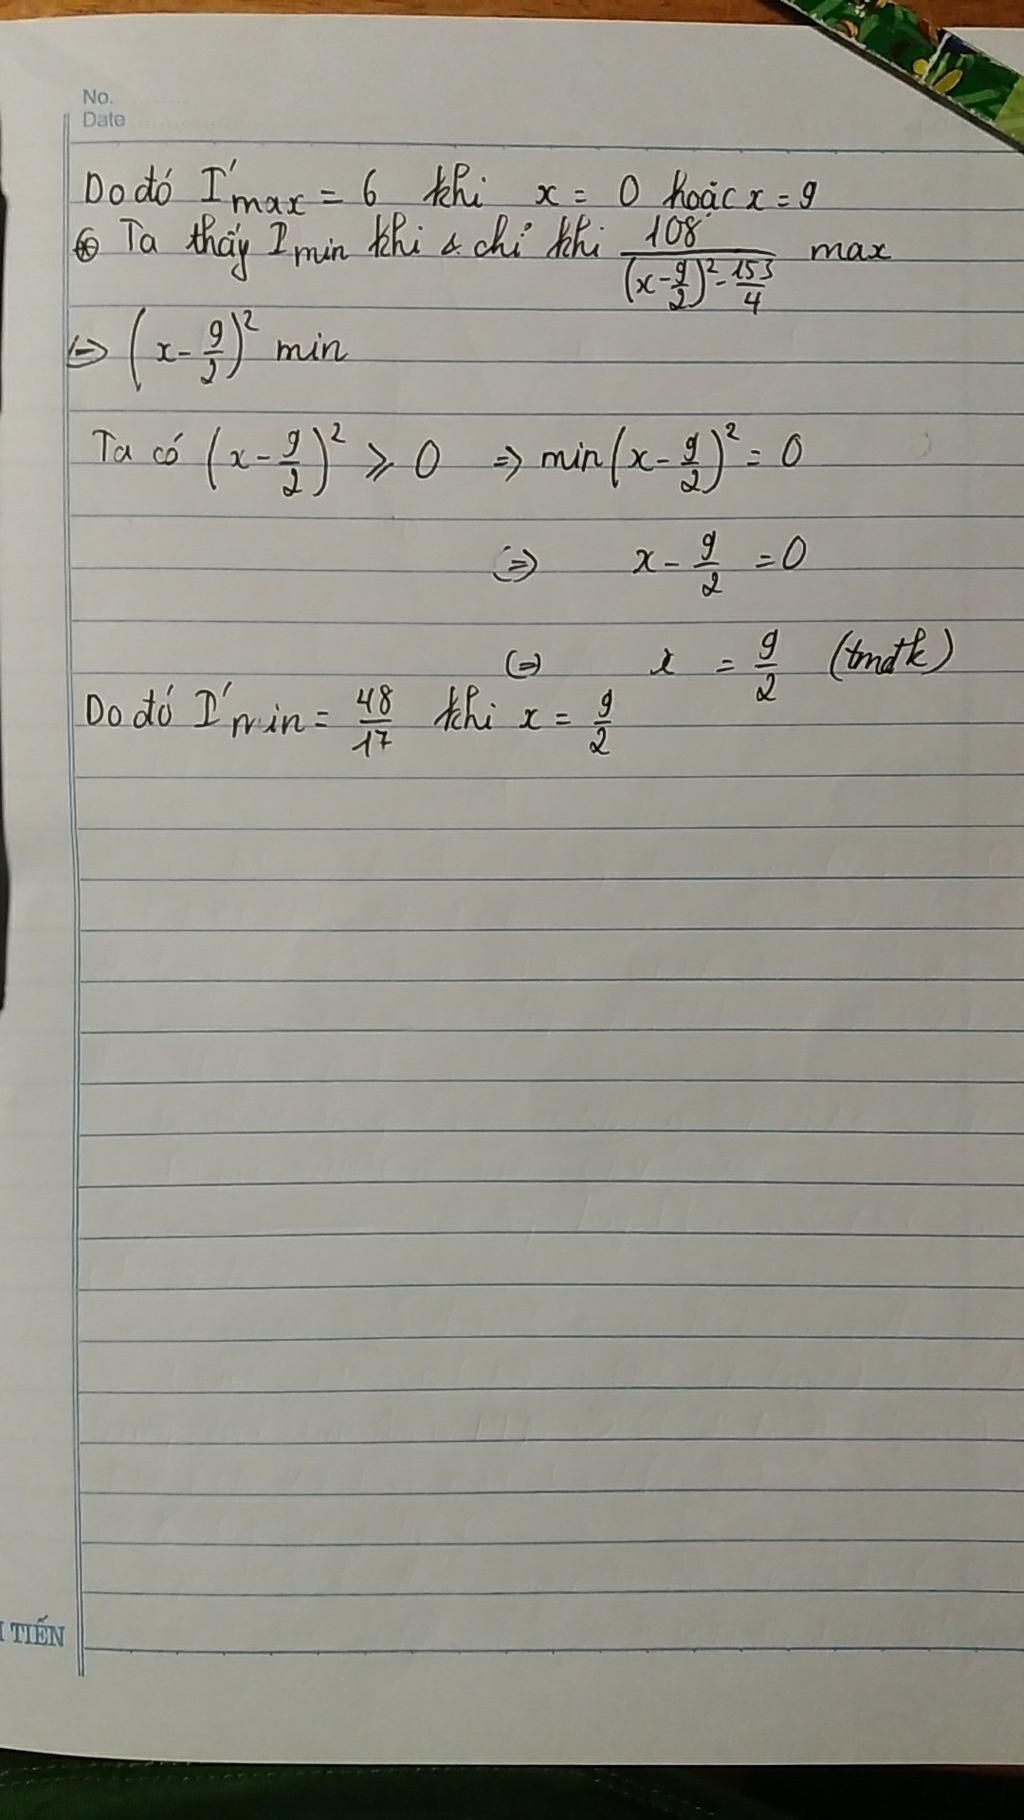 No.
Date
Do đó I'max = 6 khi x = 0 hoặc x = 9
* Ta thấy Imin khi & chỉ khi 108/((x - 9/2)² - 153/4) max
<=> (x - 9/2)² min
Ta có (x - 9/2)² ⩾ 0 => min(x - 9/2)² = 0
<=> x - 9/2 = 0
<=> x = 9/2 (tmđk)
Do đó I'min = 48/17 khi x = 9/2
TIẾN